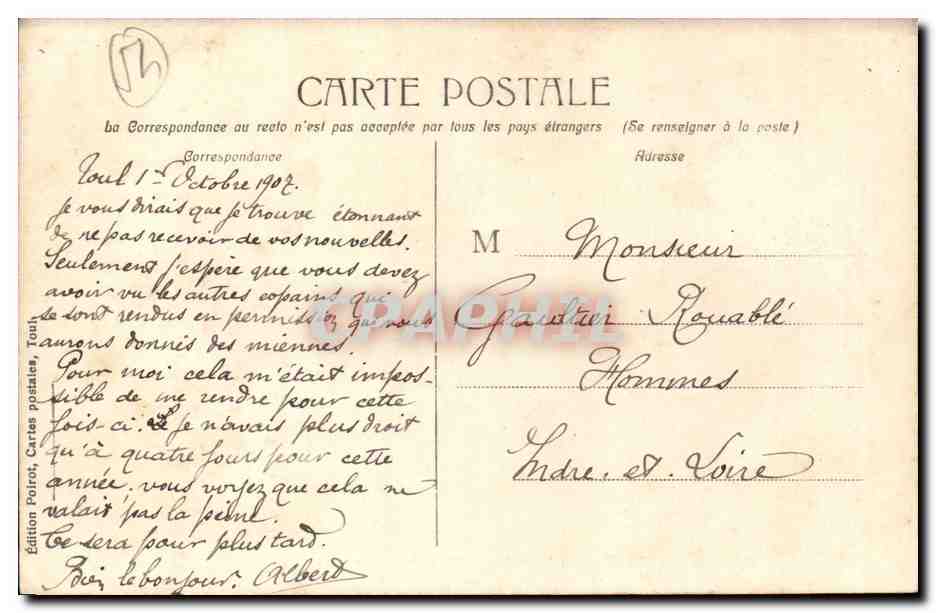 54
CARTE POSTALE
La Correspondance au recto n'est pas acceptée par tous les pays étrangers (Se renseigner à la poste)
Correspondance
Toul 1er Octobre 1907.
Je vous dirais que je trouve étonnant
de ne pas recevoir de vos nouvelles.
Seulement j'espère que vous devez
avoir vu les autres copains qui
se sont rendus en permission, que vous
aurons donnés des miennes.
Pour moi cela m'était impos-
sible de me rendre pour cette
fois-ci. Je n'avais plus droit
qu'à quatre jours pour cette
année. vous voyez que cela ne
valait pas la peine.
Ce sera pour plus tard.
Bien le bonjour. Albert
Adresse
M Monsieur
Gaultier Rouablé
Hommes
Indre. et. Loire
Édition Poirot, Cartes postales, Toul
CPAPHIL